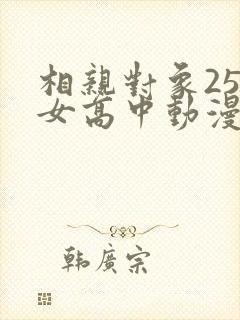 相親對象25
女高中動漫
韩廣宗